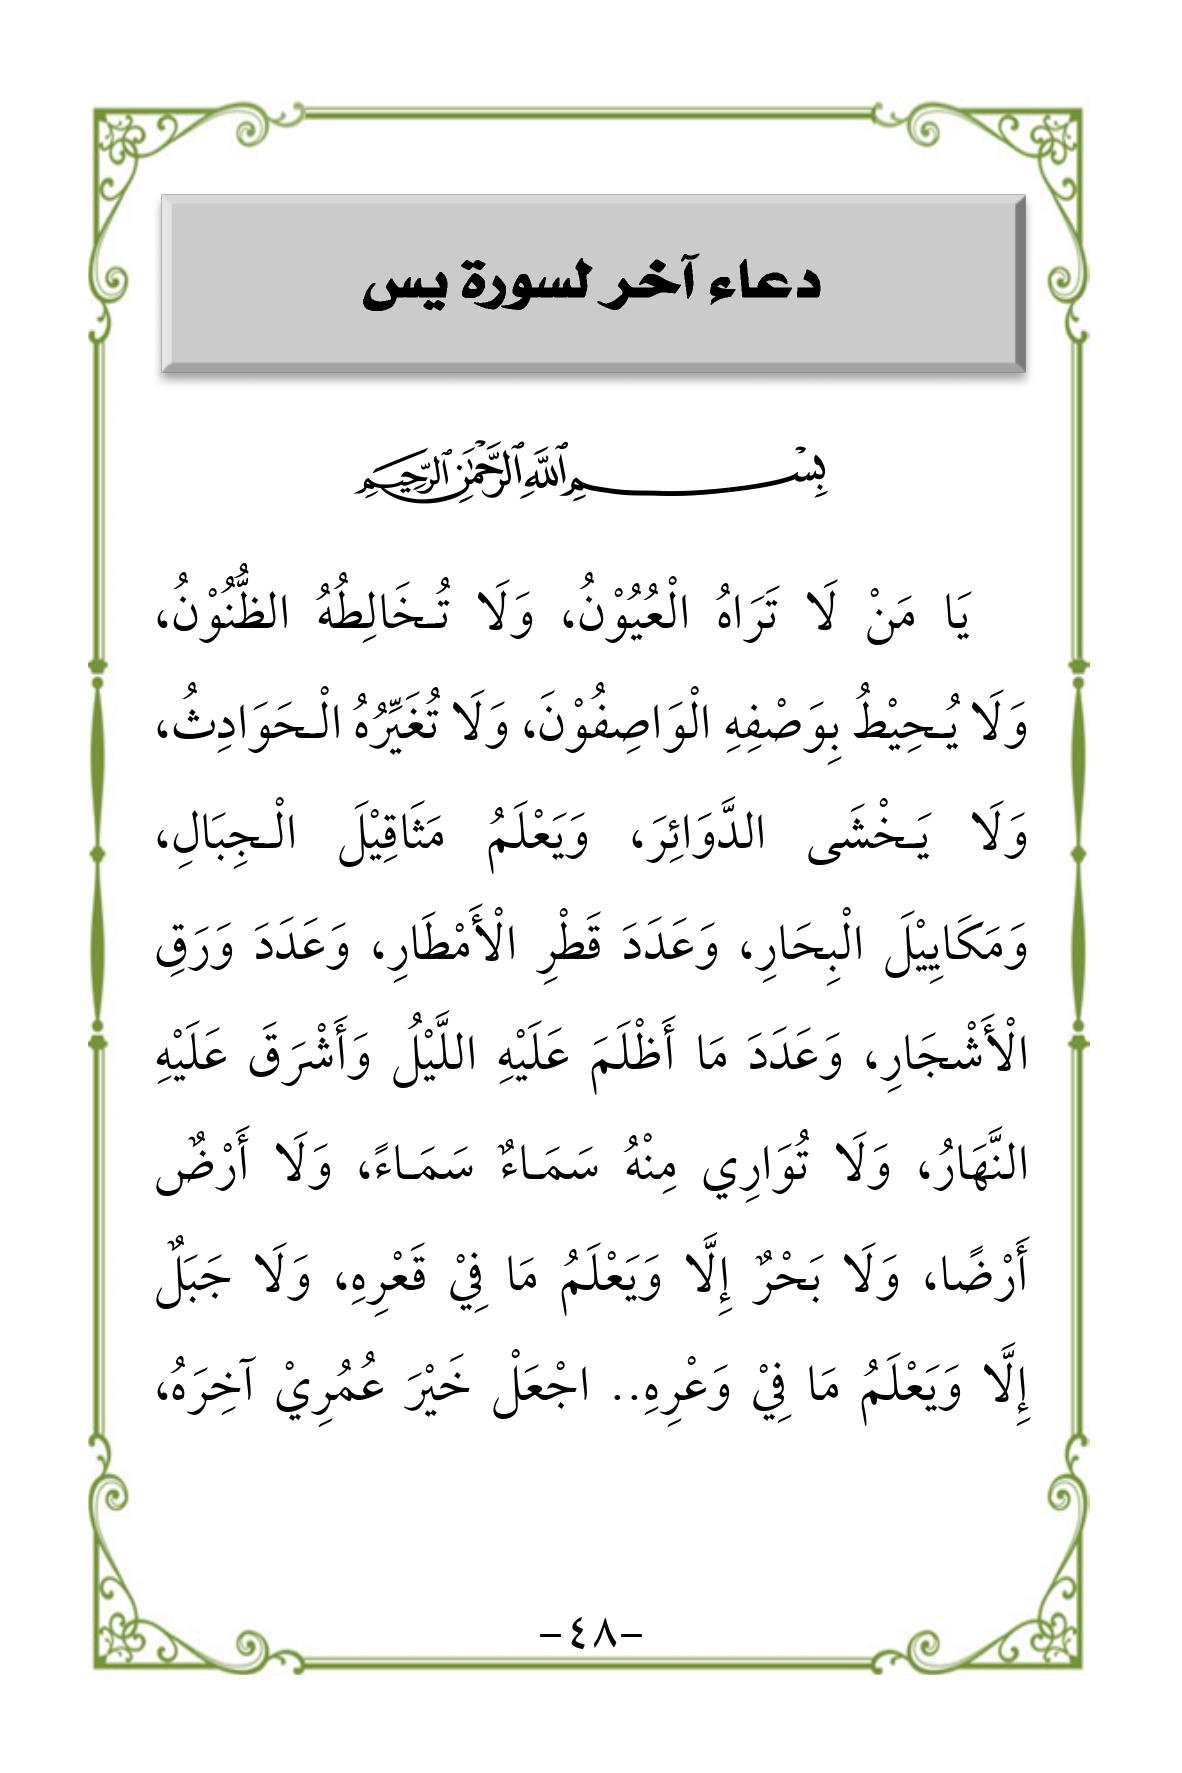 دعاء آخر لسورة يس
بِسْمِ اللَّهِ الرَّحْمَٰنِ الرَّحِيمِ
يَا مَنْ لَا تَرَاهُ الْعُيُوْنُ، وَلَا تُـخَالِطُهُ الظُّنُوْنُ،
وَلَا يُـحِيْطُ بِوَصْفِهِ الْوَاصِفُوْنَ، وَلَا تُغَيِّرُهُ الْـحَوَادِثُ،
وَلَا يَـخْشَى الدَّوَائِرَ، وَيَعْلَمُ مَثَاقِيْلَ الْـجِبَالِ،
وَمَكَايِيْلَ الْبِحَارِ، وَعَدَدَ قَطْرِ الْأَمْطَارِ، وَعَدَدَ وَرَقِ
الْأَشْجَارِ، وَعَدَدَ مَا أَظْلَمَ عَلَيْهِ اللَّيْلُ وَأَشْرَقَ عَلَيْهِ
النَّهَارُ، وَلَا تُوَارِي مِنْهُ سَمَـاءٌ سَمَـاءً، وَلَا أَرْضٌ
أَرْضًا، وَلَا بَحْرٌ إِلَّا وَيَعْلَمُ مَا فِيْ قَعْرِهِ، وَلَا جَبَلٌ
إِلَّا وَيَعْلَمُ مَا فِيْ وَعْرِهِ.. اجْعَلْ خَيْرَ عُمُرِيْ آخِرَهُ،
-٤٨-